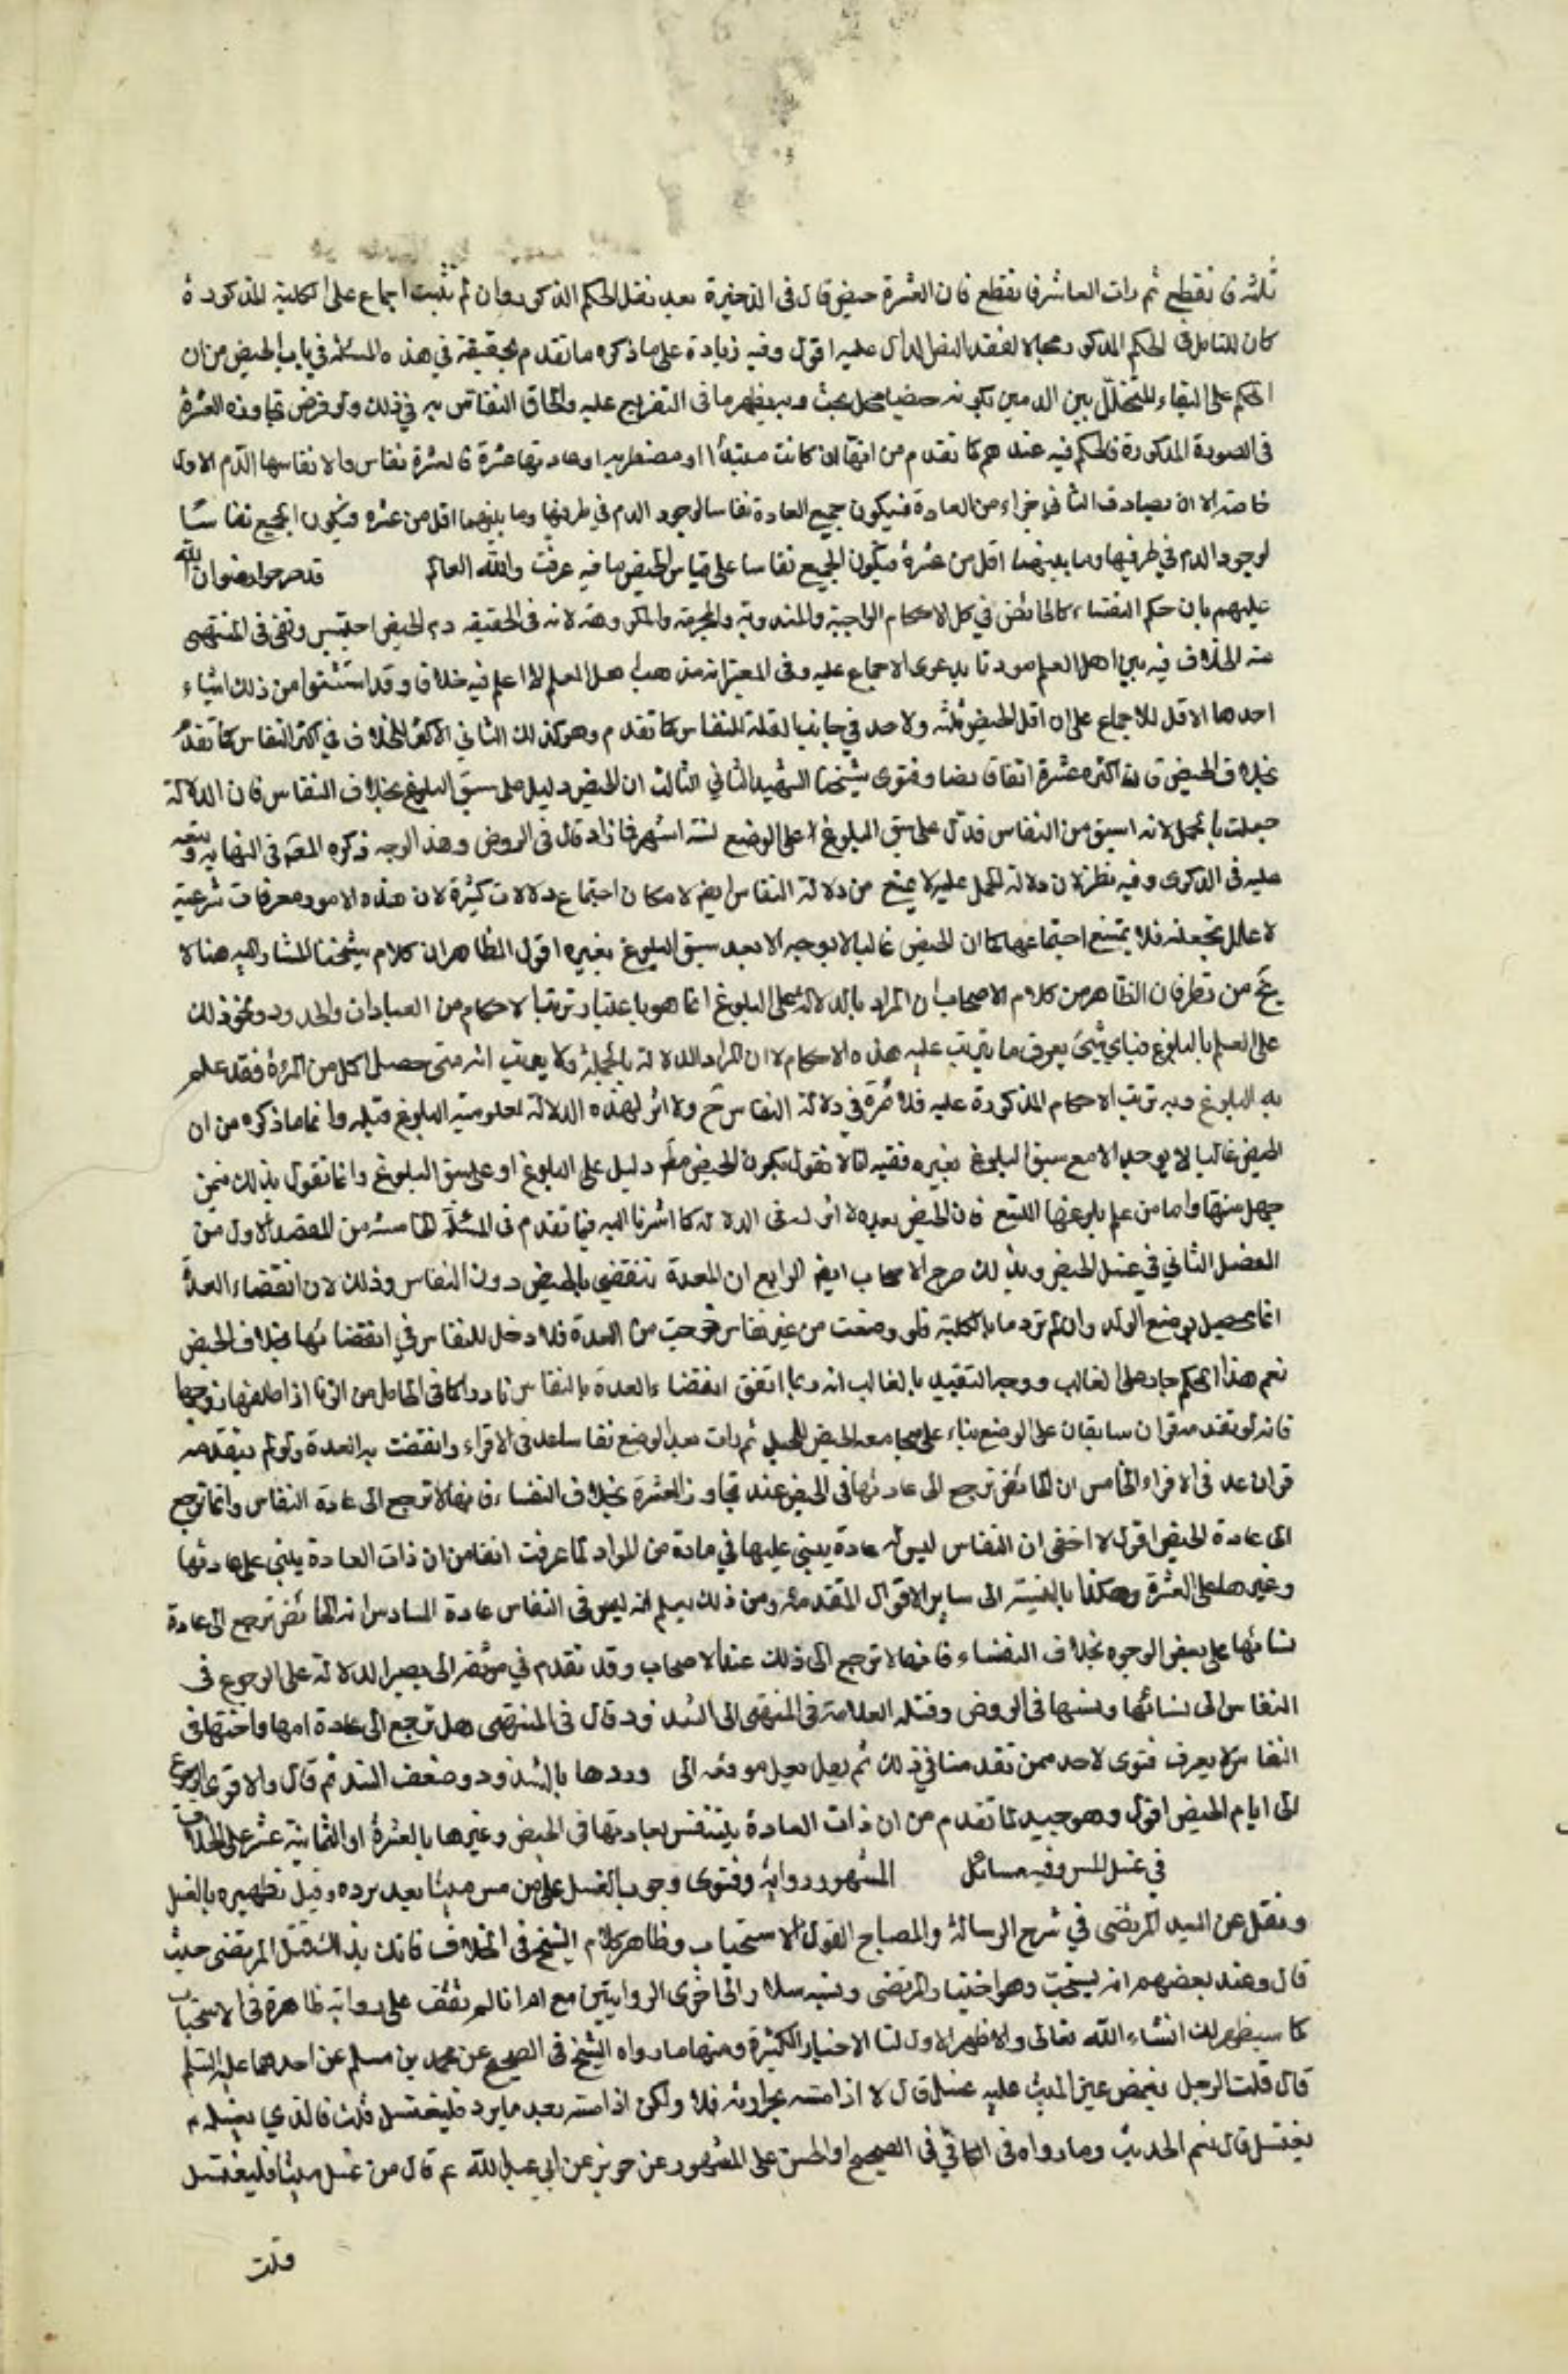 ثلثة فانقطع ثم رات العاشر فانقطع فان العشرة حيض قال فى الذخيرة بعد نقل الحكم المذكور وان لم يثبت اجماع على الكلية المذكورة
كان للتامل فى الحكم المذكور مجالا لفقد النص الدال عليه اقول وفيه زيادة على ما ذكره ما تقدم تحقيقه في هذه المسئلة في باب الحيض من ان
الحكم على النقاء المتخلل بين الدمين بكونه حيضا محل بحث وبه يظهر ما فى التفريع عليه والحاق النفاس به في ذلك ولو فرض تجاوزه العشرة
فى الصورة المذكورة فالحكم فيه عندهم كما تقدم من انها ان كانت مبتدئة او مضطربه او عادتها عشرة فالعشرة نفاس والا نفاسها الدم الاول
خاصة الا ان يصادف الثاني جزاء من العادة فيكون جميع العادة نفاسا لوجود الدم في طرفيها وما بينهما اقل من عشره فيكون الجميع نفاسا
لوجود الدم في طرفيها وما بينهما اقل من عشرة فيكون الجميع نفاسا على قياس الحيض وما فيه عرفت والله العالم قد صرحوا رضوان الله
عليهم بان حكم النفساء كالحائض في كل الاحكام الواجبة والمندوبة والمحرمة والمكروهة لانه فى الحقيقه دم الحيض احتبس ونفى فى المنتهى
منه الخلاف فيه بين اهل العلم مؤذنا بدعوى الاجماع عليه وفى المعتبر انه مذهب اهل العلم لا اعلم فيه خلافا وقد استثنوا من ذلك اشياء
احدها الاقل للاجماع على ان اقل الحيض ثلثه ولا حد في جانب القلة للنفاس كما تقدم وهو كذلك الثاني الاكثر للخلاف في اكثر النفاس كما تقدم
بخلاف الحيض فان اكثره عشرة اتفاقا نصا وفتوى شيخنا الشهيد الثاني الثالث ان الحيض دليل على سبق البلوغ بخلاف النفاس فان الدلالة
حصلت بالحمل لانه اسبق من النفاس فدل على سبق البلوغ على الوضع لستة اشهر فما زاد قال فى الروض وهذا الوجه ذكره المص فى النهايه وتبعه
عليه فى الذكرى وفيه نظر لان دلالة الحمل عليه لا يمنع من دلالة النفاس ايضا لامكان اجتماع دلالات كثيرة لان هذه الامور معرفات شرعية
لا علل عقلية فلا يمتنع اجتماعها كما ان الحيض غالبا لا يوجد الا بعد سبق البلوغ بغيره اقول الظاهر ان كلام شيخنا المشار اليه هنا لا
يخ من نظر فان الظاهر من كلام الاصحاب ان المراد بالدلالة على البلوغ انما هو باعتبار ترتب الاحكام من العبادات والحدود ونحو ذلك
على العلم بالبلوغ فباي شئ يعرف ما يترتب عليه هذه الاحكام لا ان المراد الدلالة بالجملة ولا يعرب انه متى حصل الحمل من المرءة فقد علم
به البلوغ وبه ترتب الاحكام المذكورة عليه فلا ثمرة في دلالة النفاس ح ولا اثر لهذه الدلالة لمعلومية البلوغ قبله واما ما ذكره من ان
الحيض غالبا لا يوجد الا مع سبق البلوغ بغيره ففيه انا لا نقول بكون الحيض مط دليل على البلوغ او على سبق البلوغ وانما نقول بذلك فيمن
جهل سنها واما من علم بلوغها التسع فان الحيض بعده لا اثر له فى الدلالة كما اشرنا اليه فيما تقدم فى المسئلة الخامسة من المقصد الاول من
الفصل الثاني في غسل الحيض وبذلك صرح الاصحاب ايضا الرابع ان العدة تنقضي بالحيض دون النفاس وذلك لان انقضاء العدة
انما يحصل بوضع الولد وان لم تر دما بالكلية فلو وضعت من غير نفاس خرجت من العدة فلا دخل للنفاس في انقضائها بخلاف الحيض
نعم هذا الحكم جار على الغالب ووجه التقييد بالغالب انه ربما اتفق انقضاء العدة بالنفاس نادرا كما فى الحامل من الزنا اذا طلقها زوجها
فانه لو تقدم قرآن سابقان على الوضع بناء على مجامعة الحيض للحبل ثم رات بعد الوضع نفاسا عد فى الاقراء وانقضت به العدة ولو لم يتقدمه
قرآن عد فى الاقراء الخامس ان الحائض ترجع الى عادتها فى الحيض عند تجاوز العشرة بخلاف النفساء فانها لا ترجع الى عادة النفاس وانما ترجع
الى عادة الحيض اقول لا اخفى ان النفاس ليس له عادة يبنى عليها في مادة من المواد لما عرفت انفا من ان ذات العادة يبنى على عادتها
وغيرها على العشرة وهكذا بالنسبة الى ساير الاقوال المتقدمة ومن ذلك يعلم انه ليس فى النفاس عادة السادس ان الحائض ترجع الى عادة
نسائها على بعض الوجوه بخلاف النفساء فانها لا ترجع الى ذلك عند الاصحاب وقد تقدم في موثقة ابى بصير الدلالة على الرجوع فى
النفاس الى نسائها ونسبها فى الروض وقبله العلامة فى المنتهى الى الشذوذ قال فى المنتهى هل ترجع الى عادة امها واختها فى
النفاس لا يعرف فتوى لاحد ممن تقدمنا في ذلك ثم نقل موثقه ابى وردها بالشذوذ وضعف السند ثم قال والاقوى الرجوع
الى ايام الحيض اقول وهو جيد لما تقدم من ان ذات العادة يتنفس بعادتها فى الحيض وغيرها بالعشرة او الثمانية عشر على الخلاف
في غسل المس وفيه مسائل المشهور رواية وفتوى وجوب الغسل على من مس ميتا بعد برده وقبل تطهيره بالغسل
ونقل عن السيد المرتضى في شرح الرسالة والمصباح القول بالاستحباب وظاهر كلام الشيخ فى الخلاف قائل بذلك قبل المرتضى حيث
قال وعند بعضهم انه يستحب وهو اختيار المرتضى ونسبه سلار الى اخرى الروايتين مع انا لم نقف على رواية ظاهرة فى الاستحباب
كما سيظهر لك انشاء الله تعالى والاظهر الاول لنا الاخبار الكثيرة ومنها ما رواه الشيخ فى الصحيح عن محمد بن مسلم عن احدهما عليه السلم
قال قلت الرجل يغمض عين الميت عليه غسل قال لا اذا مسه بحرارته فلا ولكن اذا مسه بعد ما يبرد فليغتسل قلت فالذي يغسله
يغتسل قال نعم الحديث وما رواه فى الكافي فى الصحيح او الحسن على المشهور عن حريز عن ابي عبد الله ع قال من غسل ميتا فليغتسل
قلت